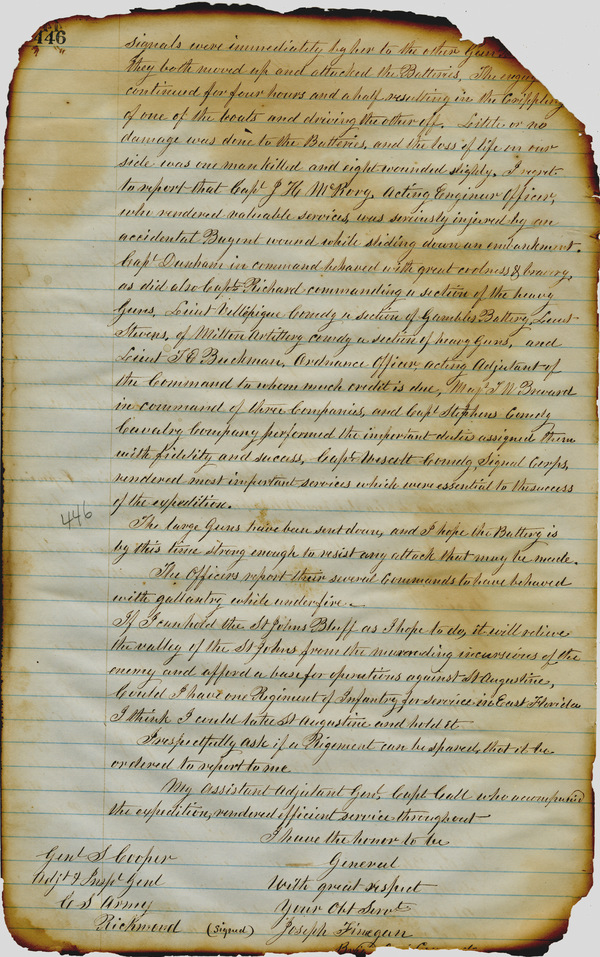 446
signals were immediately by her to the other Gun
they both moved up and attacked the Batteries, The
continued for four hours and a half resulting in the Crippling
of one of the boats and driving the other off. Little or no
damage was done to the Batteries, and the loss of life on our
side was one man killed and eight wounded slightly. I regret
to report that Capt J H McRory. Acting Engineer Officer,
who rendered valuable services, was seriously injured by an
accidental wound while sliding down an embankment.
Capt Dunham in command behaved with great coolness & bravery,
as did also Capt Richard commanding a section of the heavy
Guns, Lieut Villepigue Comdg a section of Gambles Battery, Lieut
Stevens, of Milton Artillery comdg a section of heavy Guns, and
Lieut T E Buckman, Ordnance Officer, acting Adjutant of
the Command to whom much credit is due, Maj T W Brevard
in command of three Companies, and Capt Stephens Comdg
Cavalry Company performed the important duties assigned them
with fidelity and success, Capt Wescott Comdg, Signal Corps,
rendered most important services which were essential to the success
of the expedition.
446
The large Guns have been sent down, and I hope the Battery is
by this time strong enough to resist any attack that may be made.
The Officers report their several Commands to have behaved
with gallantry while under fire.
If I can hold the St Johns Bluff as I hope to do, it will relieve
the valley of the St Johns from the marauding incursions of the
enemy and afford a base for operations against St Augustine,
Could I have one Regiment of Infantry for service in East Florida
I think I could take St Augustine and hold it
I respectfully ask if a Regiment can be spared, that it be
ordered to report to me
My Assistant Adjutant Genl. Capt Call who accompanied
the expedition, rendered efficient service throughout
I have the honor to be
General
With great respect
Your Obt Servt
Genl S Cooper
Adjt & Inspr Genl
C S Army
Richmond
(signed) Joseph Finegan